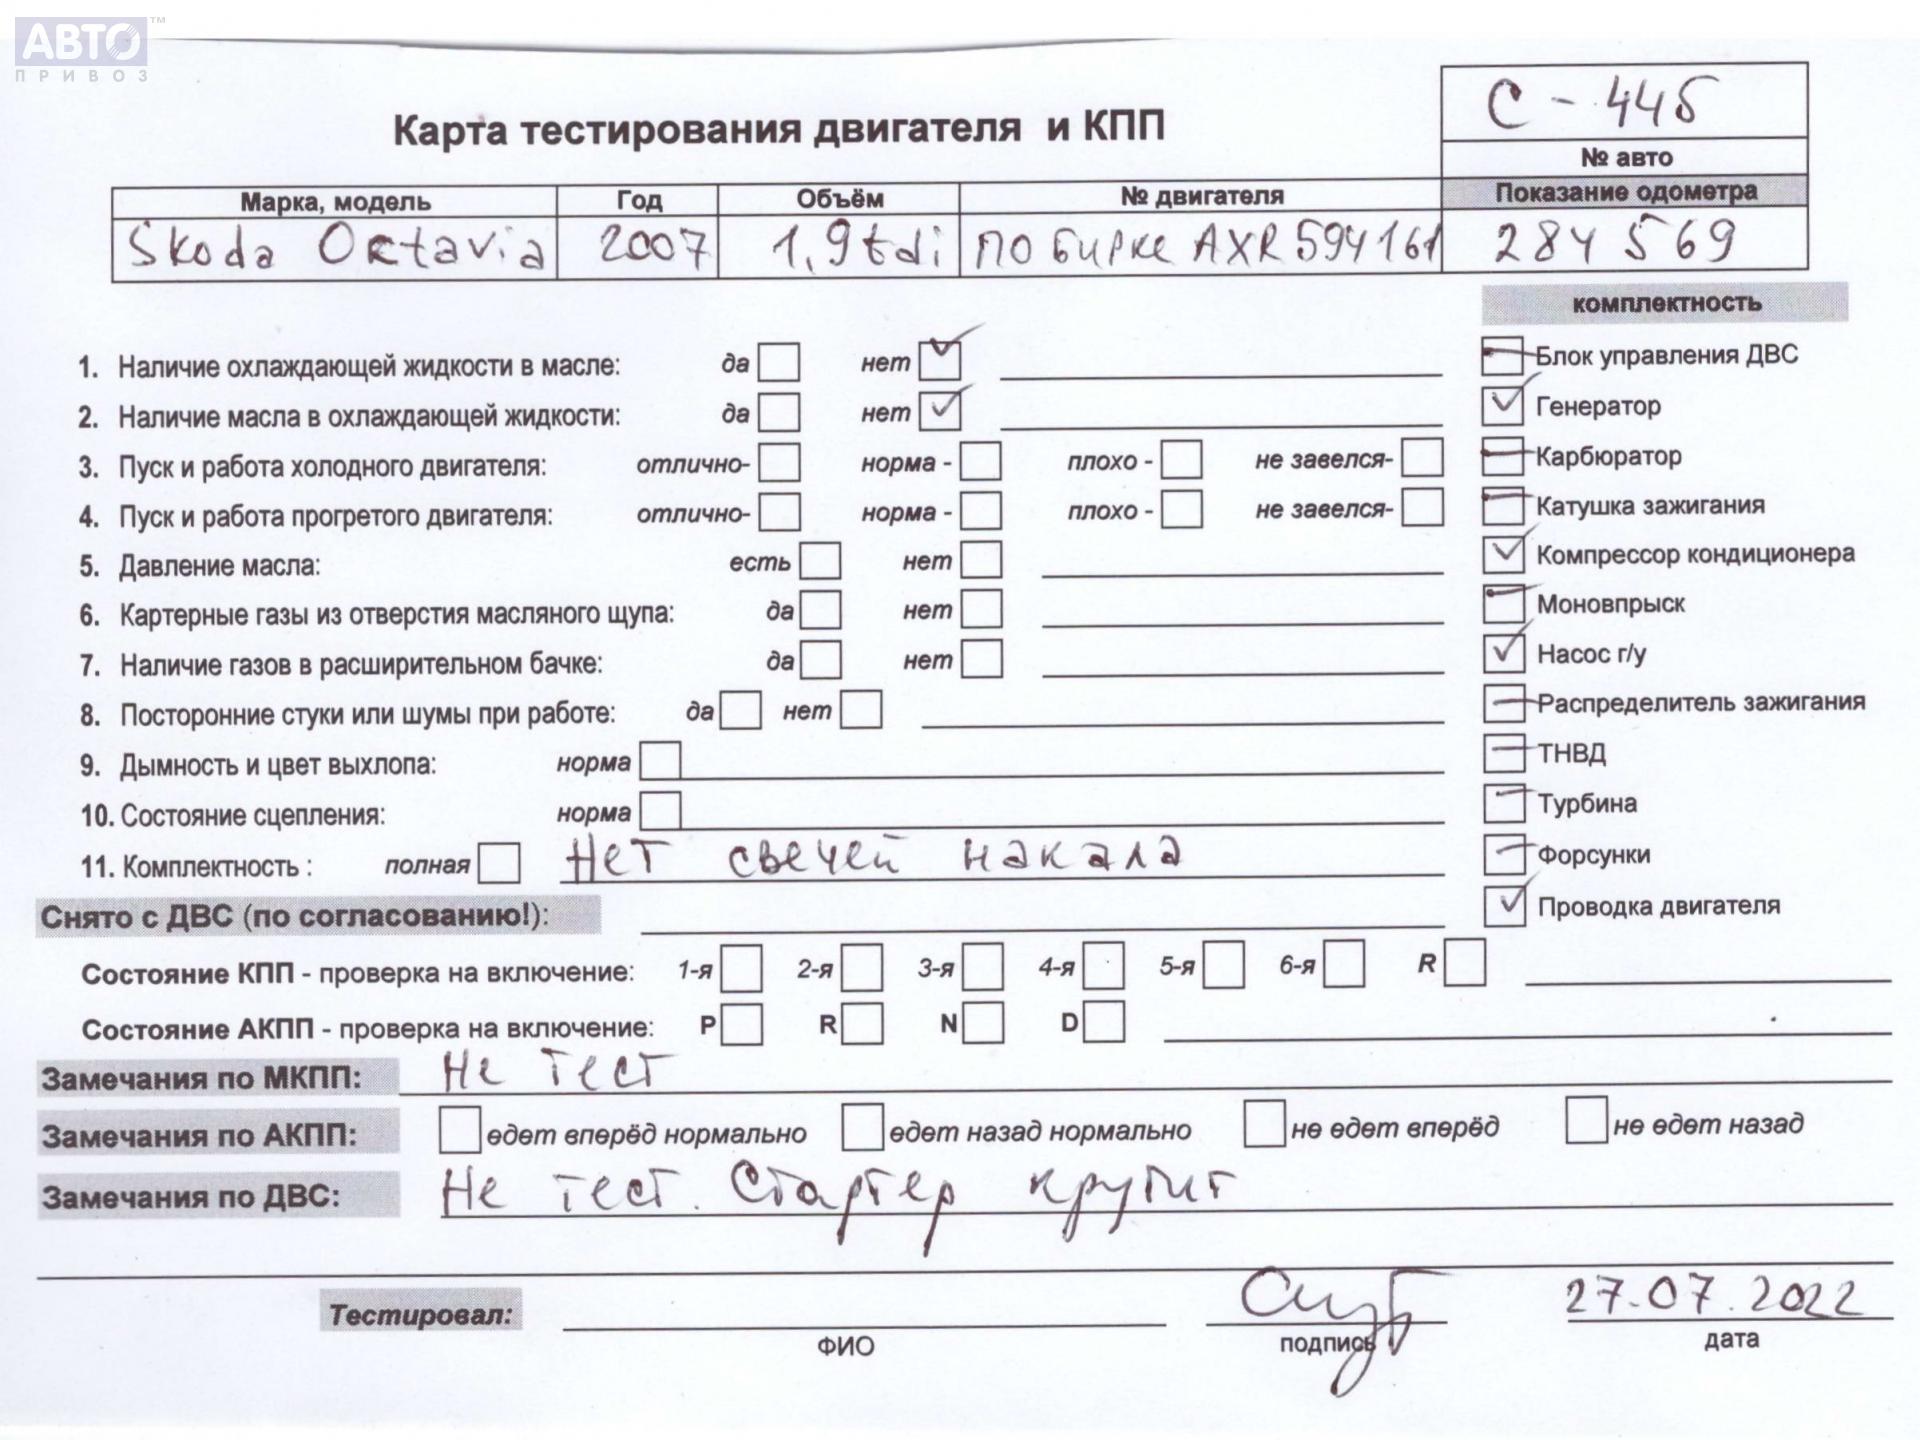 АВТО™
ПРИВОЗ
С - 445
Карта тестирования двигателя и КПП
№ авто
Марка, модель Год Объём № двигателя Показание одометра
Skoda Octavia 2007 1,9tdi по бирке AXR594161 284569
комплектность
1. Наличие охлаждающей жидкости в масле: да нет ✓
Блок управления ДВС
2. Наличие масла в охлаждающей жидкости: да нет ✓
✓ Генератор
3. Пуск и работа холодного двигателя: отлично- норма - плохо - не завелся-
Карбюратор
4. Пуск и работа прогретого двигателя: отлично- норма - плохо - не завелся-
Катушка зажигания
5. Давление масла: есть нет
✓ Компрессор кондиционера
6. Картерные газы из отверстия масляного щупа: да нет
Моновпрыск
7. Наличие газов в расширительном бачке: да нет
✓ Насос г/у
8. Посторонние стуки или шумы при работе: да нет
Распределитель зажигания
9. Дымность и цвет выхлопа: норма
ТНВД
10. Состояние сцепления: норма
Турбина
11. Комплектность : полная Нет свечей накала
Форсунки
Снято с ДВС (по согласованию!):
✓ Проводка двигателя
Состояние КПП - проверка на включение: 1-я 2-я 3-я 4-я 5-я 6-я R
Состояние АКПП - проверка на включение: P R N D
Замечания по МКПП: Не тест
Замечания по АКПП: едет вперёд нормально едет назад нормально не едет вперёд не едет назад
Замечания по ДВС: Не тест. Стартер крутит
Тестировал: 27.07.2022
ФИО подпись дата